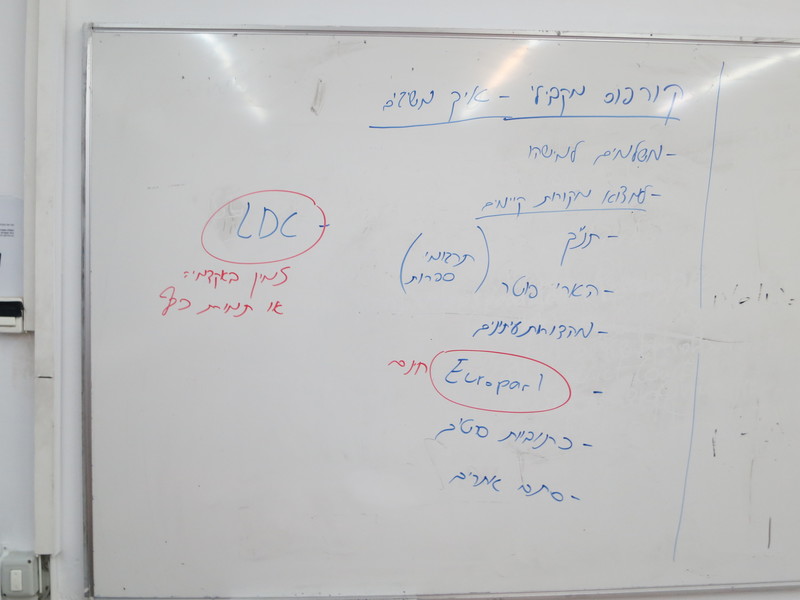 קורפוס מקבילי - איך משיגים
- משלמים למישהו
- למצוא מקורות קיימים
- תנ"ך
- הארי פוטר (תרגומי ספרות)
- מהדורות עיתונים
- Europarl חינם
- כתוביות סטיב
- סתם אתרים
- LDC
זמין באקדמיה
או תמורת כסף